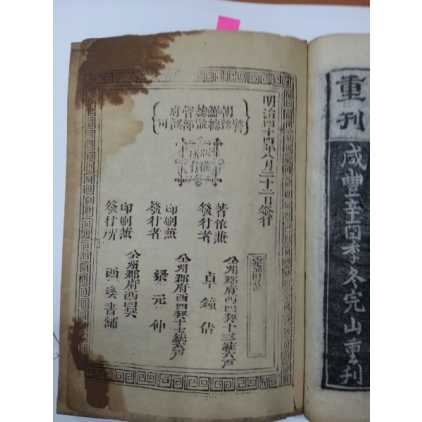 重刊
咸豐辛酉季冬完山重刊
明治四十四年八月二十二日發行
朝鮮總督府
警務總監部認可
版權所有
著作兼
發行者
全州郡府西四契十三統戶
卓鍾佶
印刷兼
發行者
全州郡府西四契十七統戶
梁元仲
印刷兼
發行所
全州郡府西四契
西溪書鋪